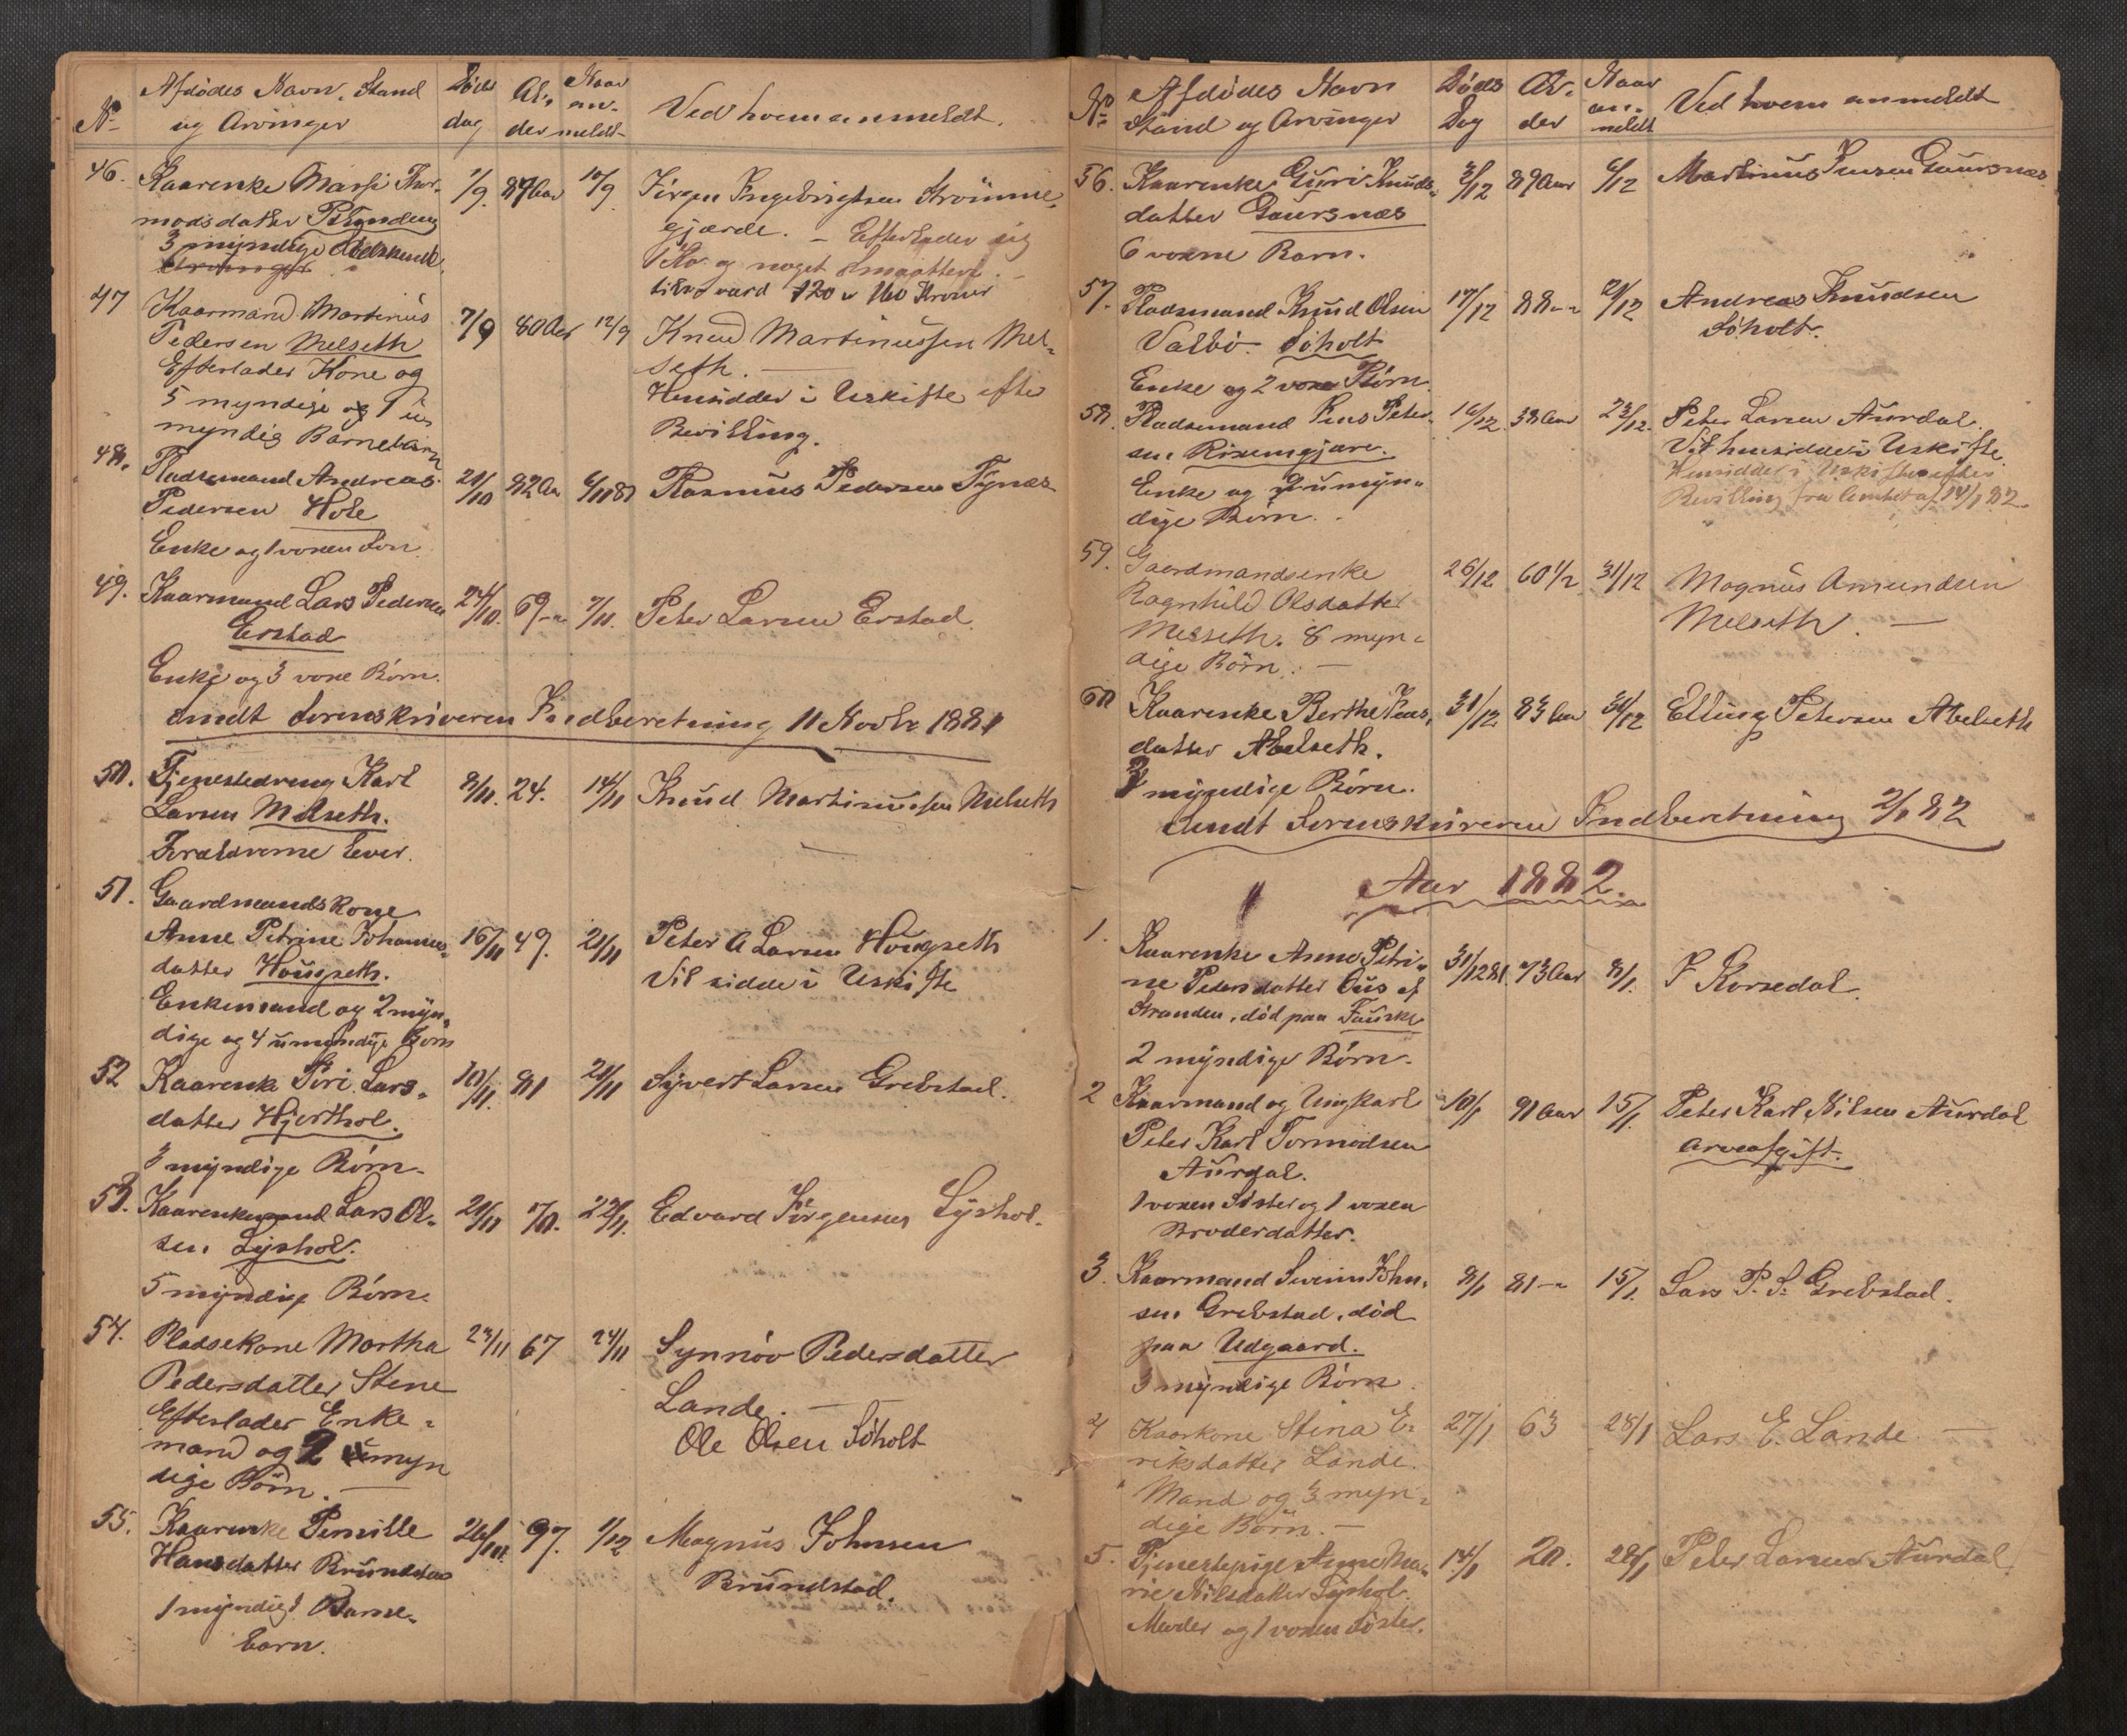 No Afdödes Navn, Stand og Arvinger Döds dag Al- der Naar an- meldt Ved hvem anmeldt.
46. Kaarenke Marsi Thor- 1/9. 87 Aar 10/9 Jörgen Ingebrigtsen Strömme-
modsdatter
3 myndige
gjærde. – Efterlader sig
1 Ko og noget Smaatteri. –
tilsv værd 120 a 160 Kroner
47 Kaarmand Martinus 7/9 80 Aar 12/9 Knud Martinussen Mel-
Pedersen Melseth seth. —
Efterlader Kone og Hensidder i Uskifte efter
5 myndige og 1 u Bevilling.
myndig Barnebarn
48. Pladsemand Andreas 21/10 82 Aa 6/11 81 Rasmus Pedersen Tynæs
Pedersen Hole
Enke og 1 voxen Sön.
49. Kaarmand Lars Pedersen 24/10. 69 -„- 7/11. Peter Larsen Erstad.
Erstad
Enke og 3 voxe Börn.
Sendt Sorenskriveren Indberetning 11 Novbr 1881
50. Tjenestedreng Karl 8/11. 24. 14/11 Knud Martinussen Melseth
Larsen Melseth. —
Forældrerne lever.
51. Gaardmandskone
Anne Petrine Johannes- 16/11 49. 21/11 Peter A Larsen Hougseth
datter Hougseth. Vil sidde i Uskifte
Enkemand og 2 myn-
dige og 4 umyndige Börn
52 Kaarenke Siri Lars- 10/11. 81 21/11 Syvert Larsen Grebstad.
datter Hjorthol.
3 myndige Börn.
53. Kaarenkemand Lars Ol- 21/11 70. 22/11. Edvard Jörgensen Lyshol.
sen Lyshol.
5 myndige Börn.
54. Pladsekone Martha 23/11 67 24/11 Synnöv Pedersdatter
Pedersdatter Stene Lande. —
Efterlader Enke- Ole Olsen Söholt
mand og 2 umyn
dige Börn. —
55. Kaarenke Pernille 26/11. 97. 1/12 Magnus Johnsen
Hansdatter Brundstad Brundstad.
1 myndigt Barne-
barn.
No Afdödes Navn Stand og Arvinger Döds Dag Al- der Naar an- meldt Ved hvem anmeldt
56. Kaarenke Guri Knuds- 3/12 89 Aar 6/12 Martinus Jensen Gaursnæs
datter Gaursnæs
6 voxne Barn.
57. Pladsemand Knud Olsen 17/12 88 -„- 21/12 Andreas Knudsen
Valbö. Söholt Söholt.
Enke og 2 voxe Börn.
58. Pladsemand Jens Peter- 16/12. 38 Aar 23/12. Peter Larsen Aurdal.
sen Risemgjære. Vil hensidde i Uskifte
Enke og 2 umyn- Hensidder i Uskifte efter
dige Börn. Bevilling fra Amtet af 14/1 82.
59. Gaardmandsenke 26/12 60 1/2 31/12 Magnus Amundsen
Ragnhild Olsdatter Melseth. —
Melseth. 8 myn-
dige Börn. —
60 Kaarenke Berthe Jens- 31/12 83 Aar 31/12 Elling Petersen Abelseth
datter Abelseth.
3 myndige Börn.
Sendt Sorenskriveren Indberetning 2/1 82
Aar 1882.
1. Kaarenke Anne Petri- 31/12 81. 73 Aar 8/1. J Korsedal.
ne Pedersdatter Aus af
Stranden, död paa Fauske
2 myndige Börn.
2 Kaarmand og Ungkarl 10/1 91 Aar 15/1. Peter Karl Nilsen Aurdal
Peter Karl Tormodsen Arveafgift.
Aurdal.
1 voxen Söster og 1 voxen
Broderdatter.
3. Kaarmand Sveinn John- 8/1 81 -„- 15/1. Lars P. S. Grebstad.
sen Grebstad, död
paa Udgaard.
3 myndige Börn.
4 Kaarkone Stina E- 27/1 63 28/1 Lars E. Lande —
riksdatter Lande.
Mand og 3 myn-
dige Börn. —
5. Tjenestepige Anne Ma- 14/1 20. 28/1 Peter Larsen Aurdal.
rie Nilsdatter Lyshol.
Moder og 1 voxen Söster.